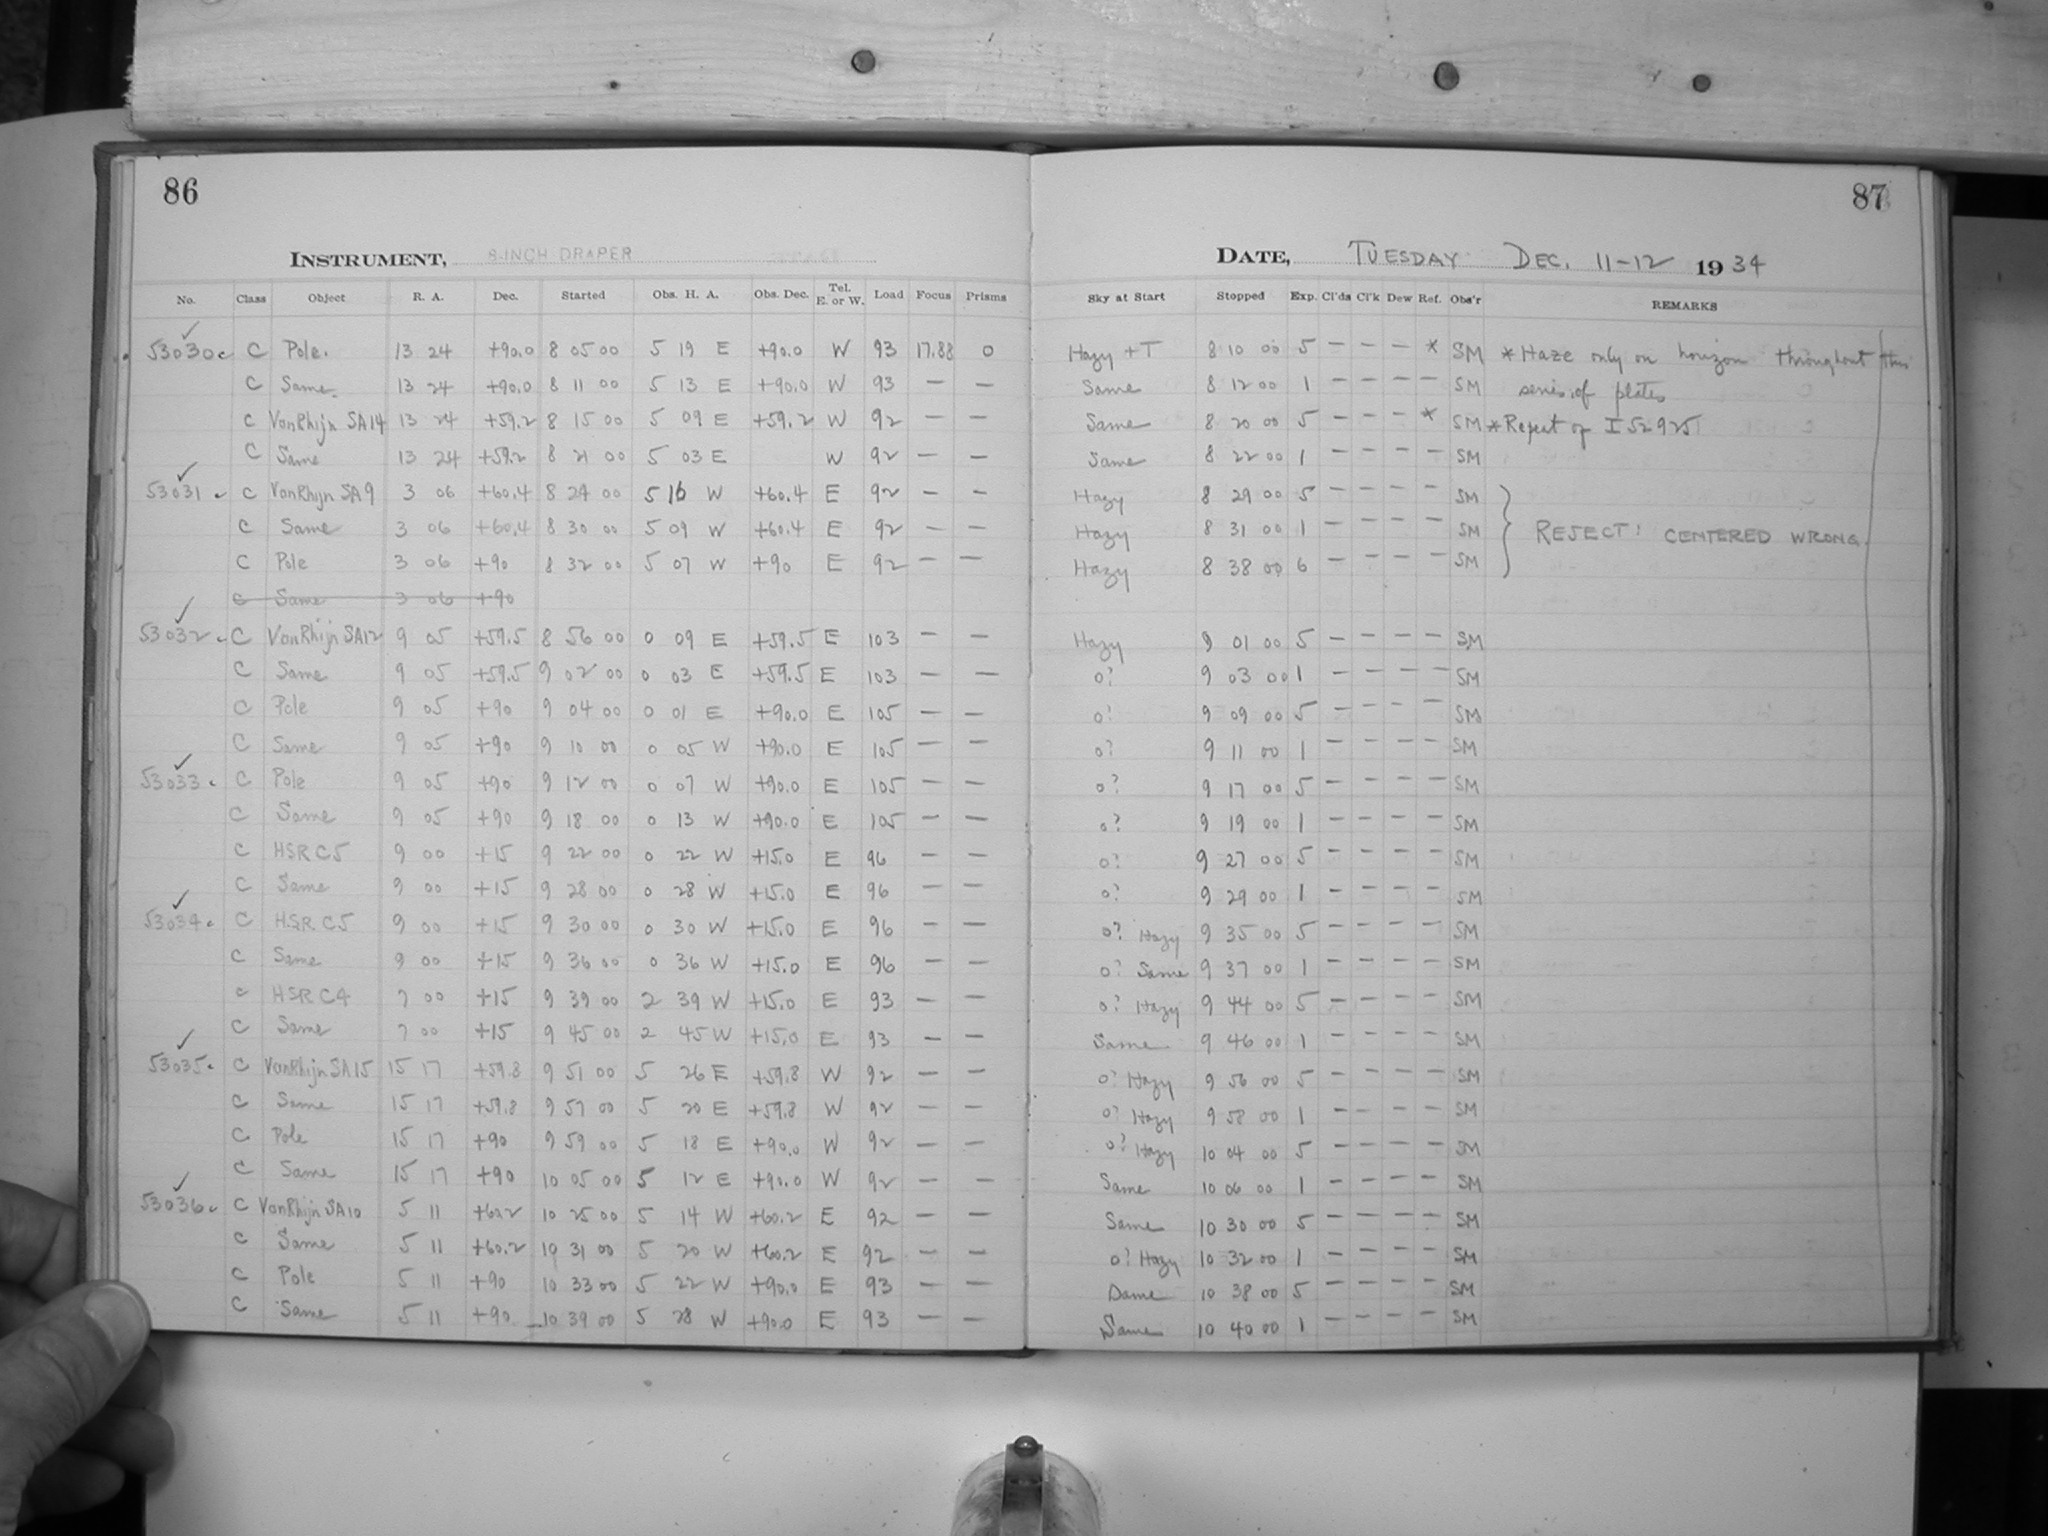 86
INSTRUMENT, 8-INCH DRAPER
No. Class Object R. A. Dec. Started Obs. H. A. Obs. Dec. Tel. E. or W. Load Focus Prisms
53030 C Pole. 13 24 +90.0 8 05 00 5 19 E +90.0 W 93 17.88 0
C Same 13 24 +90.0 8 11 00 5 13 E +90.0 W 93 — —
C VanRhijn SA14 13 24 +59.2 8 15 00 5 09 E +59.2 W 92 — —
C Same 13 24 +59.2 8 21 00 5 03 E W 92 — —
53031 C VanRhijn SA9 3 06 +60.4 8 24 00 5 16 W +60.4 E 92 — —
C Same 3 06 +60.4 8 30 00 5 09 W +60.4 E 92 — —
C Pole 3 06 +90 8 32 00 5 07 W +90 E 92 — —
C Same 3 06 +90
53032 C VanRhijn SA12 9 05 +59.5 8 56 00 0 09 E +59.5 E 103 — —
C Same 9 05 +59.5 9 02 00 0 03 E +59.5 E 103 — —
C Pole 9 05 +90 9 04 00 0 01 E +90.0 E 105 — —
C Same 9 05 +90 9 10 00 0 05 W +90.0 E 105 — —
53033 C Pole 9 05 +90 9 12 00 0 07 W +90.0 E 105 — —
C Same 9 05 +90 9 18 00 0 13 W +90.0 E 105 — —
C HSR C5 9 00 +15 9 22 00 0 22 W +15.0 E 96 — —
C Same 9 00 +15 9 28 00 0 28 W +15.0 E 96 — —
53034 C HSR C5 9 00 +15 9 30 00 0 30 W +15.0 E 96 — —
C Same 9 00 +15 9 36 00 0 36 W +15.0 E 96 — —
C HSR C4 7 00 +15 9 39 00 2 39 W +15.0 E 93 — —
C Same 7 00 +15 9 45 00 2 45 W +15.0 E 93 — —
53035 C VanRhijn SA15 15 17 +59.8 9 51 00 5 26 E +59.8 W 92 — —
C Same 15 17 +59.8 9 57 00 5 20 E +59.8 W 92 — —
C Pole 15 17 +90 9 59 00 5 18 E +90.0 W 92 — —
C Same 15 17 +90 10 05 00 5 12 E +90.0 W 92 — —
53036 C VanRhijn SA10 5 11 +60.2 10 25 00 5 14 W +60.2 E 92 — —
C Same 5 11 +60.2 10 31 00 5 20 W +60.2 E 92 — —
C Pole 5 11 +90 10 33 00 5 22 W +90.0 E 93 — —
C Same 5 11 +90 10 39 00 5 28 W +90.0 E 93 — —
87
DATE, TUESDAY DEC. 11-12 1934
Sky at Start Stopped Exp. Cl'ds Cl'k Dew Ref. Obs'r REMARKS
Hazy + T 8 10 00 5 — — — * SM * Haze only on horizon throughout this
Same 8 12 00 1 — — — — SM series of plates
Same 8 20 00 5 — — — * SM * Repeat of I 52925
Same 8 22 00 1 — — — — SM
Hazy 8 29 00 5 — — — — SM
Hazy 8 31 00 1 — — — — SM REJECT: CENTERED WRONG.
Hazy 8 38 00 6 — — — — SM
Hazy 9 01 00 5 — — — — SM
0? 9 03 00 1 — — — — SM
0? 9 09 00 5 — — — — SM
0? 9 11 00 1 — — — — SM
0? 9 17 00 5 — — — — SM
0? 9 19 00 1 — — — — SM
0? 9 27 00 5 — — — — SM
0? 9 29 00 1 — — — — SM
0? Hazy 9 35 00 5 — — — — SM
0? Same 9 37 00 1 — — — — SM
0? Hazy 9 44 00 5 — — — — SM
Same 9 46 00 1 — — — — SM
0? Hazy 9 56 00 5 — — — — SM
0? Hazy 9 58 00 1 — — — — SM
0? Hazy 10 04 00 5 — — — — SM
Same 10 06 00 1 — — — — SM
Same 10 30 00 5 — — — — SM
0? Hazy 10 32 00 1 — — — — SM
Same 10 38 00 5 — — — — SM
Same 10 40 00 1 — — — — SM